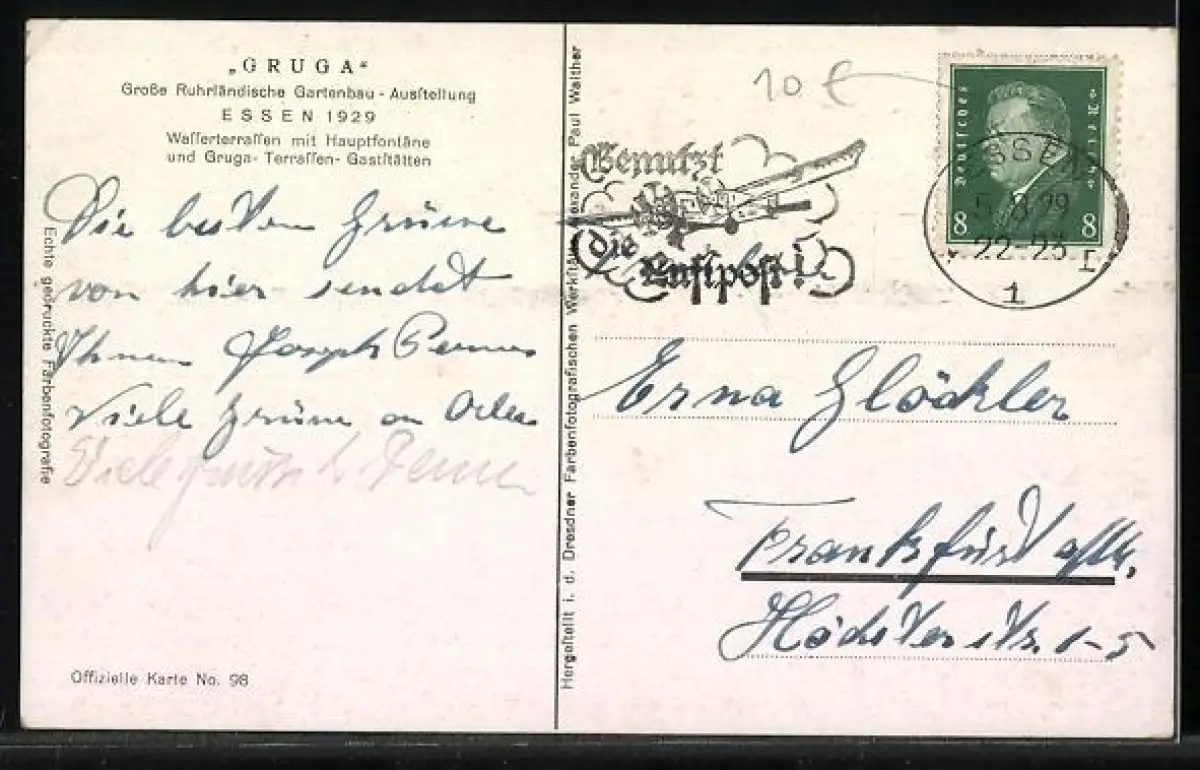 „GRUGA“
Große Ruhrländische Gartenbau-Ausſtellung
ESSEN 1929
Waſſerterraſſen mit Hauptfontäne
und Gruga-Terraſſen-Gaſtſtätten
Die besten Grüsse
von hier sendet
Ihnen Joseph
Viele Grüsse
Viele
Echte gedruckte Farbenfotografie
Offizielle Karte No. 98
Hergeſtellt i. d. Dresdner Farbenfotografiſchen Werkſtät Alexander Paul Walther
10 €
Benutzt
die
Luftpost!
Deutſches Reich
8 8
ESSEN
5. 8. 29
22-23
1
Erna Glöckler
Frankfurt a/M,
Höchsterstr. 1-5